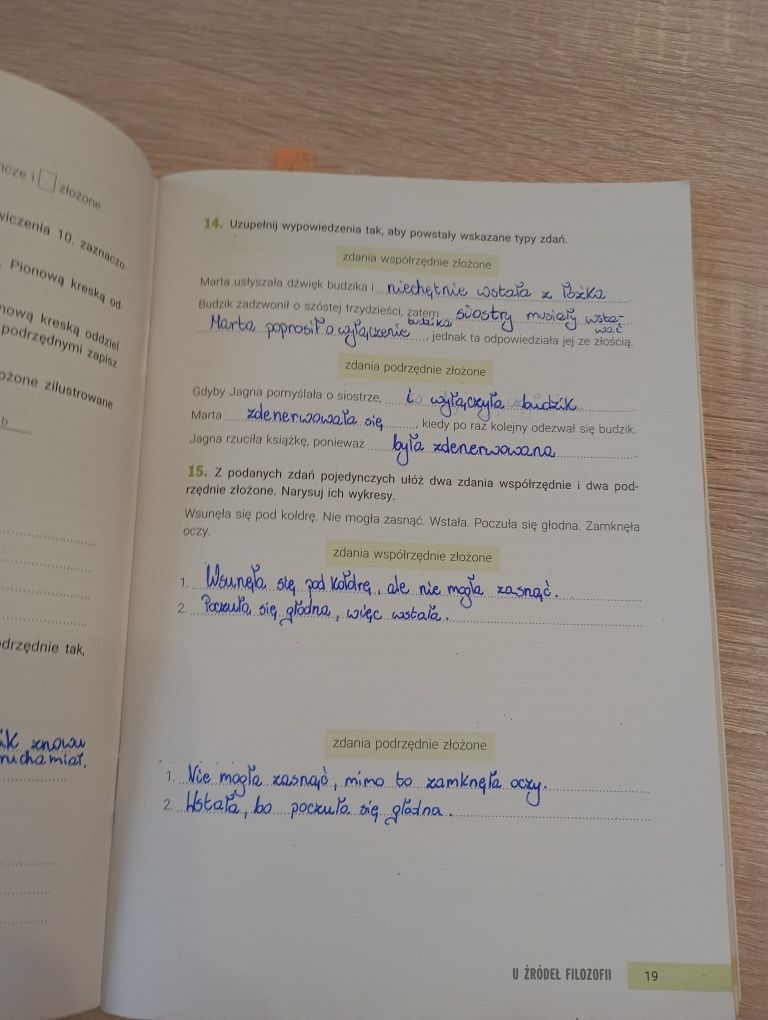 cze i □ złożone.
wiczenia 10. zaznaczo
Pionową kreską od
nową kreską oddziel
podrzędnymi zapisz
ożone zilustrowane
b
drzędnie tak,
ik znowu
ruchamiał.
14. Uzupełnij wypowiedzenia tak, aby powstały wskazane typy zdań.
zdania współrzędnie złożone
Marta usłyszała dźwięk budzika i niechętnie wstała z łóżka
Budzik zadzwonił o szóstej trzydzieści, zatem siostry musiały wsta-
wać
budzika
Marta poprosiła o wyłączenie, jednak ta odpowiedziała jej ze złością.
zdania podrzędnie złożone
Gdyby Jagna pomyślała o siostrze, i wyłączyła budzik
Marta zdenerwowała się, kiedy po raz kolejny odezwał się budzik.
Jagna rzuciła książkę, ponieważ była zdenerwowana
15. Z podanych zdań pojedynczych ułóż dwa zdania współrzędnie i dwa pod-
rzędnie złożone. Narysuj ich wykresy.
Wsunęła się pod kołdrę. Nie mogła zasnąć. Wstała. Poczuła się głodna. Zamknęła
oczy.
zdania współrzędnie złożone
1. Wsunęła się pod kołdrę, ale nie mogła zasnąć.
2. Poczuła się głodna, więc wstała.
zdania podrzędnie złożone
1. Nie mogła zasnąć, mimo to zamknęła oczy.
2. Wstała, bo poczuła się głodna.
U ŹRÓDEŁ FILOZOFII 19